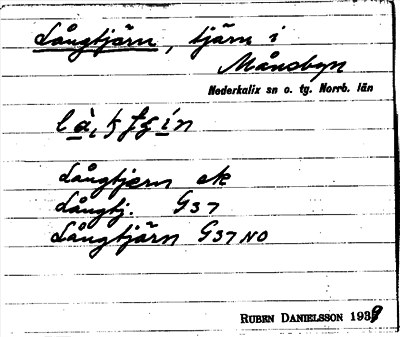 Långtjärn, tjärn i
Månsbyn
Nederkalix sn o. tg. Norrb. län
Långtjærn ek
Långtj. G37
Långtjärn G37NO
RUBEN DANIELSSON 1938